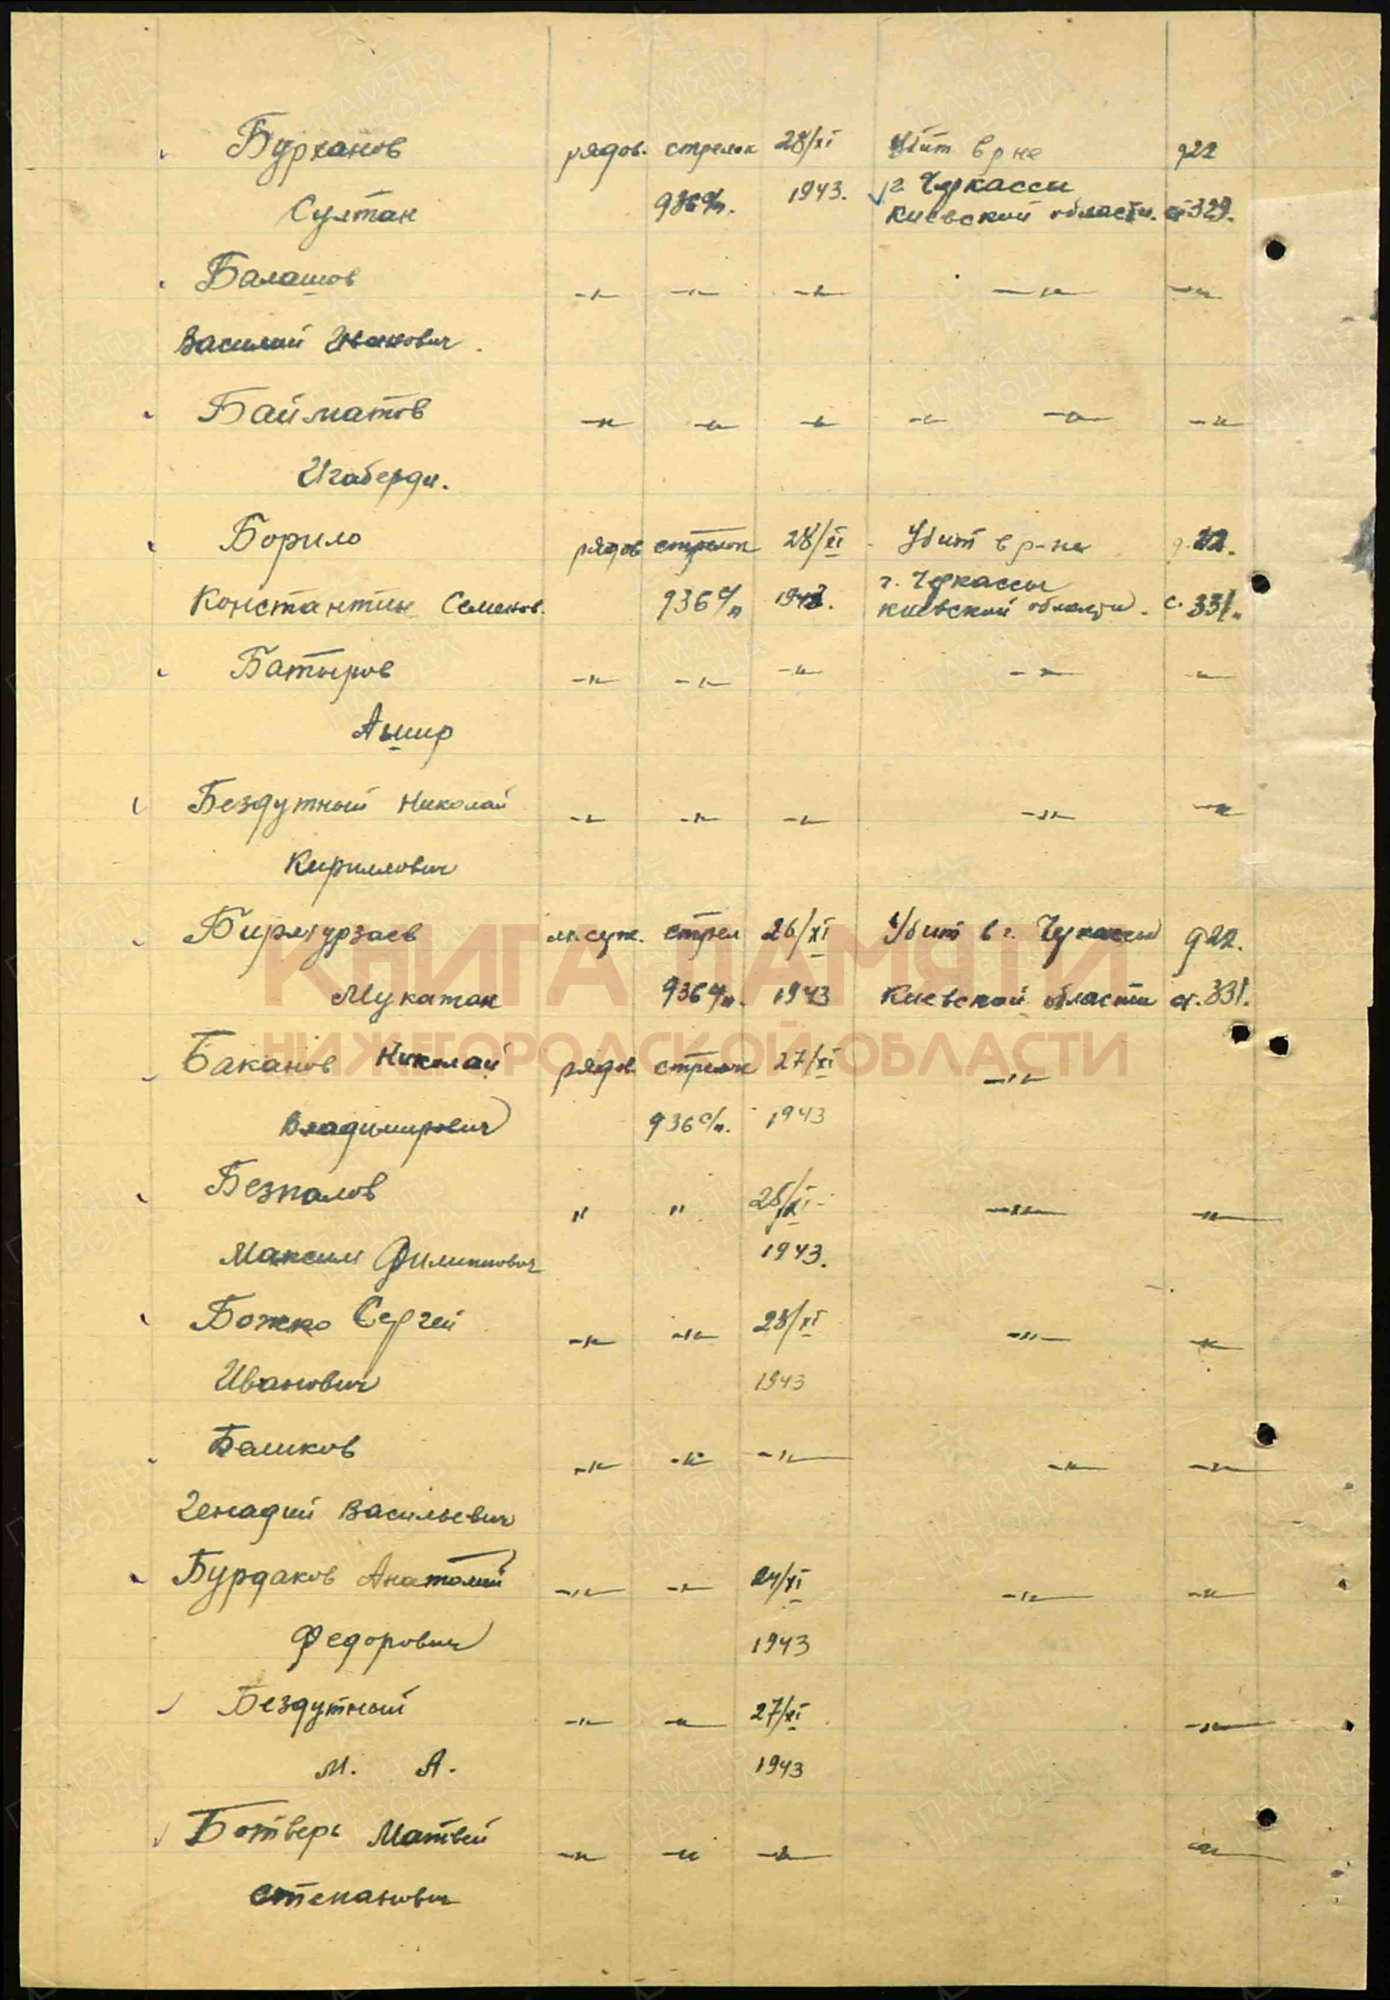 Бурханов рядов. стрелок 28/XI Убит в р не д22
Султан 936 с/п. 1943. г. Черкассы
Киевской области. ст 329.
Балашов -"- -"- -"- -"- -"-
Василий Иванович.
Байматов -"- -"- -"- -"- -"- -"-
Игаберди.
Борило рядов стрелок 28/XI Убит в р-не д.22.
Константин Семенов. 936 с/п 1943. г. Черкассы
Киевской области. с. 331.
Батыров -"- -"- -"- -"- -"-
Ашир
Бездутный Николай -"- -"- -"- -"- -"-
Кириллович
Бирмурзаев мл.серж. стрел 26/XI Убит в г. Черкассы д22.
Мукатан 936 с/п. 1943 Киевской области ст. 331.
КНИГА ПАМЯТИ
НИЖЕГОРОДСКОЙ ОБЛАСТИ
Баканов Николай рядов. стрелок 27/XI -"-
Владимирович 936 с/п. 1943
Безпалов " " 28/XI -"- -"-
Максим Филиппович 1943.
Божко Сергей -"- -"- 28/XI -"- -"-
Иванович 1943
Баликов -"- -"- -"- -"- -"-
Генадий Васильевич
Бурдаков Анатолий -"- -"- 24/XI -"- -"-
Федорович 1943
Бездутный -"- -"- 27/XI -"-
М. А. 1943
Ботверь Матвей -"- -"- -"- -"-
Степанович
ПАМЯТЬ НАРОДА